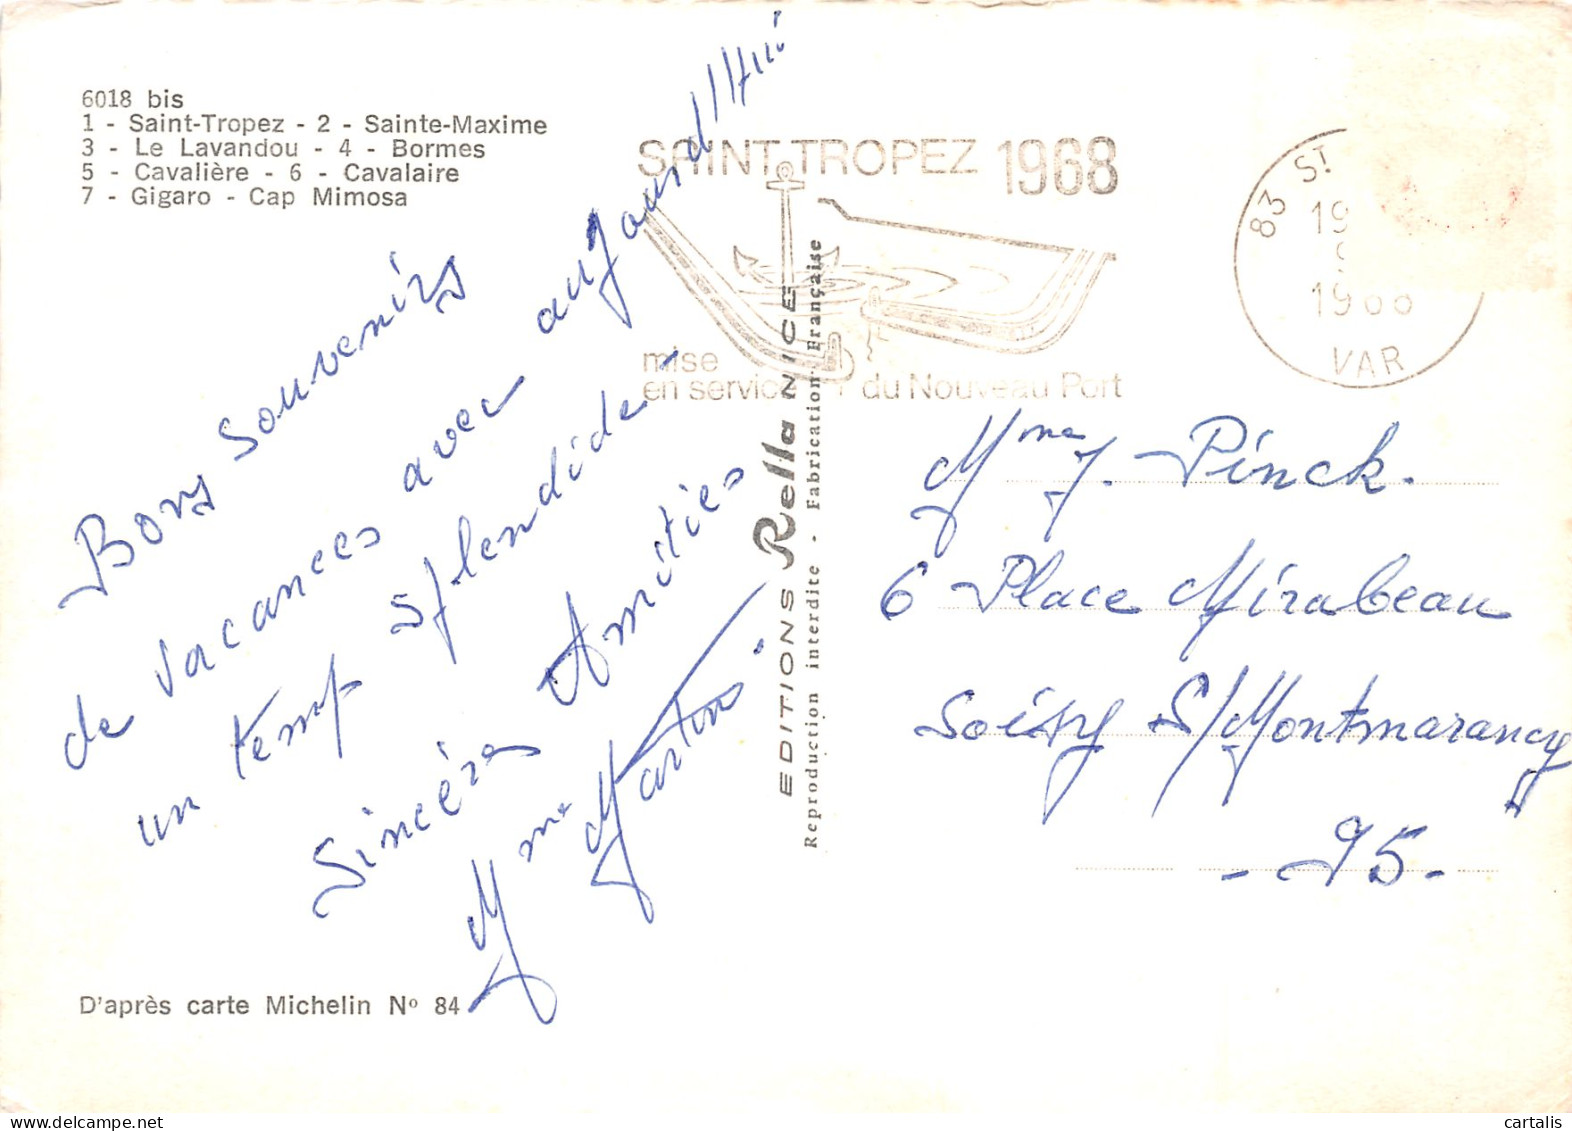 6018 bis
1 - Saint-Tropez - 2 - Sainte-Maxime
3 - Le Lavandou - 4 - Bormes
5 - Cavalière - 6 - Cavalaire
7 - Gigaro - Cap Mimosa
Bons souvenirs
de vacances avec aujourd'Hui
un temp splendide -
Sincères Amitiés
Mme Martin
D'après carte Michelin No 84
EDITIONS Rella NICE
Reproduction interdite - Fabrication Française
SAINT TROPEZ 1968
mise
en service du Nouveau Port
83 ST
19
1968
VAR
Mme J. Pinck.
6 Place Mirabeau
Soisy S/Montmorency
- 95 -
cartalis
delcampe.net